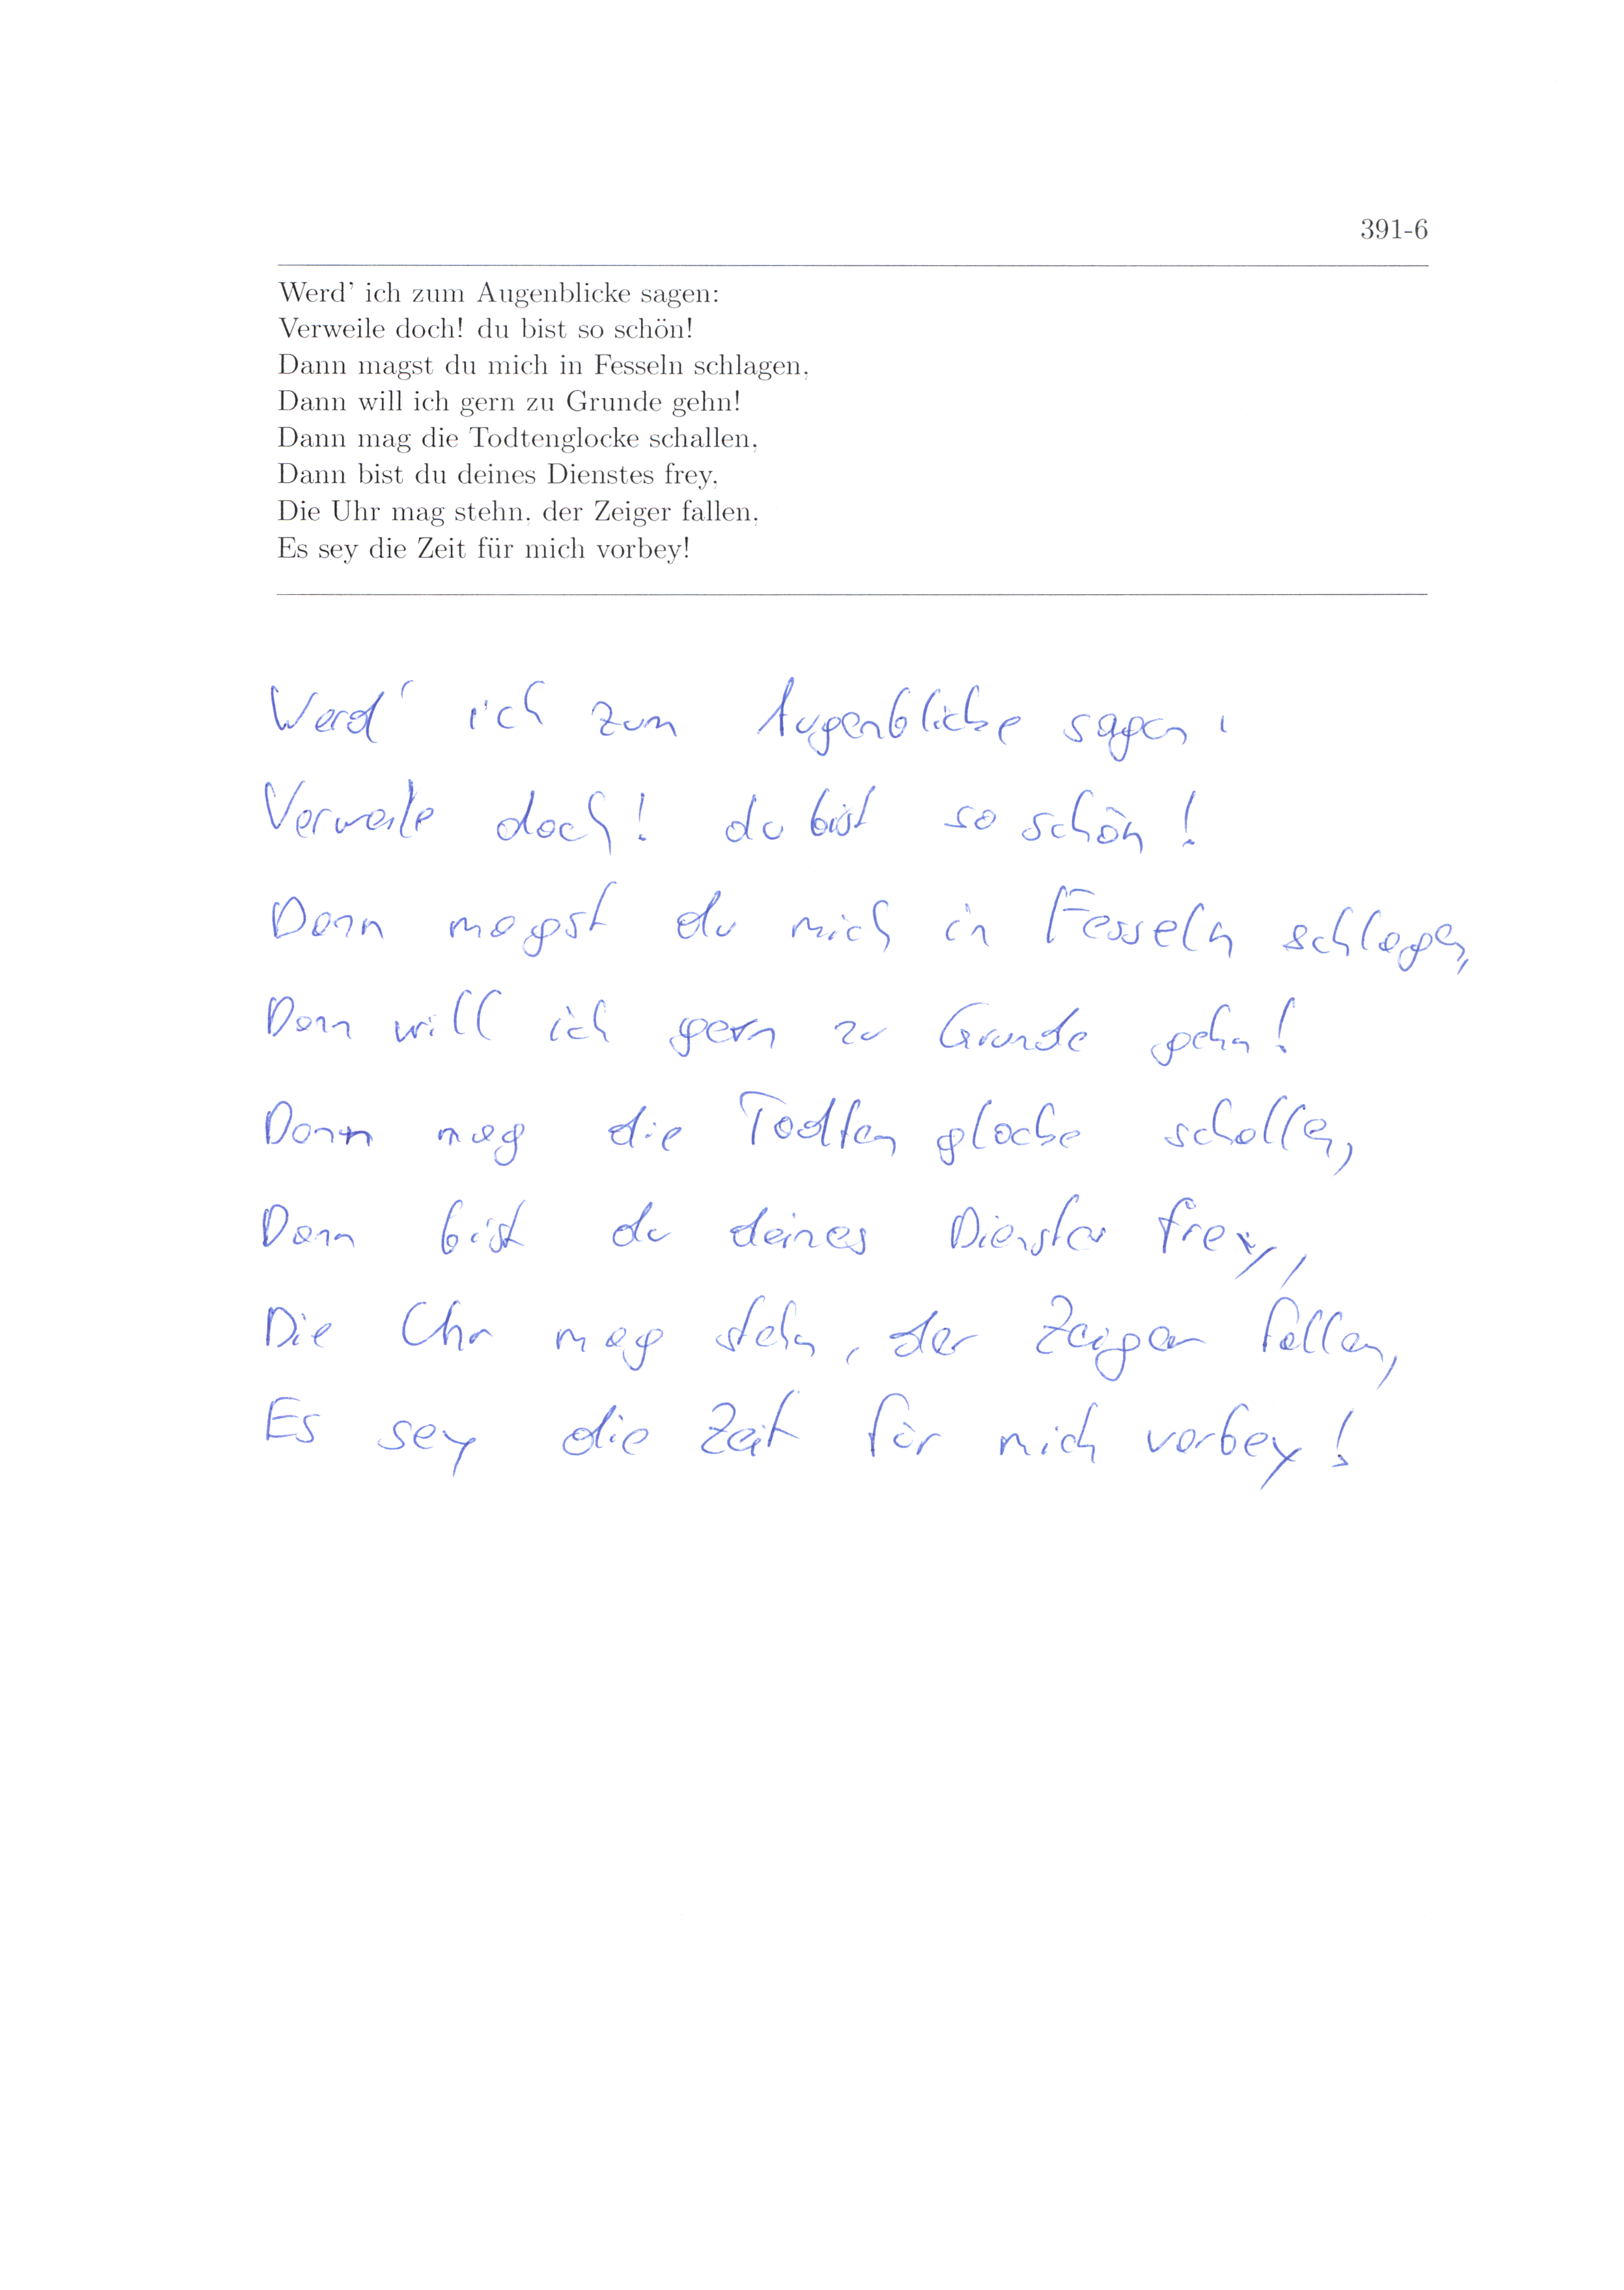 391-6
Werd' ich zum Augenblicke sagen:
Verweile doch! du bist so schön!
Dann magst du mich in Fesseln schlagen,
Dann will ich gern zu Grunde gehn!
Dann mag die Todtenglocke schallen,
Dann bist du deines Dienstes frey,
Die Uhr mag stehn, der Zeiger fallen,
Es sey die Zeit für mich vorbey!
Werd' ich zum Augenblicke sagen:
Verweile doch! du bist so schön!
Dann magst du mich in Fesseln schlagen,
Dann will ich gern zu Grunde gehn!
Dann mag die Todten glocke schallen,
Dann bist du deines Dienstes frey,
Die Uhr mag stehn, der Zeiger fallen,
Es sey die Zeit für mich vorbey!